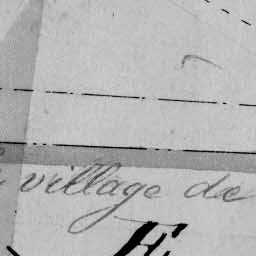 village de
E